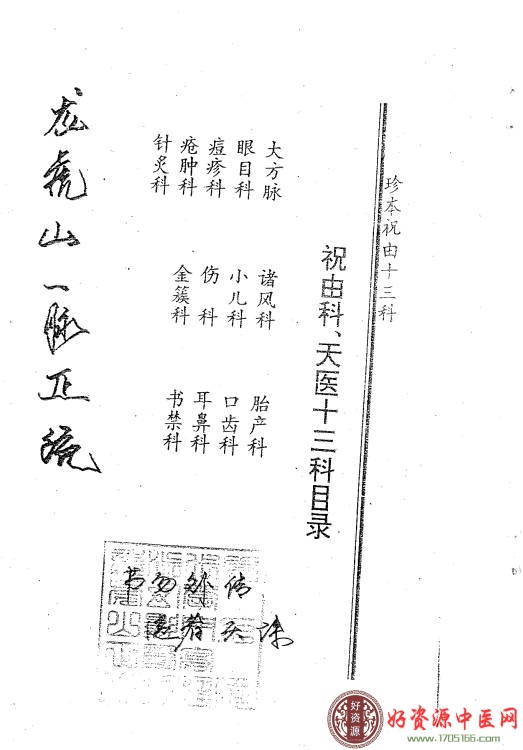 珍本祝由十三科
祝由科、天医十三科目录
大方脉 诸风科 胎产科
眼目科 小儿科 口齿科
痘疹科 伤科 耳鼻科
疮肿科 金簇科 书禁科
针炙科
龙虎山一脉正统
书勿外传
违者天诛
好资源
好资源中医网
www.1705166.com